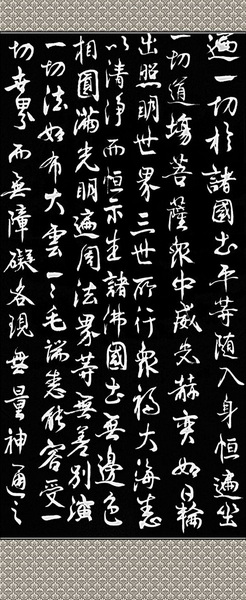 遍一切於諸國土平等隨入身恒遍坐
一切道場菩薩眾中威光赫奕如日輪
出照明世界三世所行眾福大海悉
以清淨而恒示生諸佛國土無邊色
相圓滿光明遍周法界等無差別演
一切法如布大雲一一毛端悉能容受一
切世界而無障礙各現無量神通之